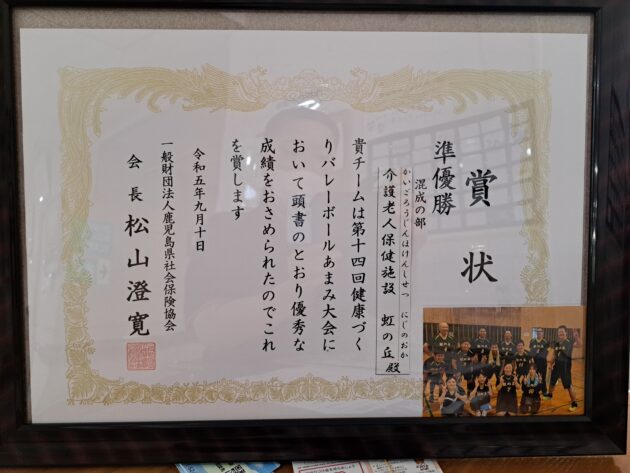 賞状
準優勝
混成の部
かいごろうじんほけんしせつ にじのおか
介護老人保健施設 虹の丘 殿
貴チームは第十四回健康づく
りバレーボールあまみ大会に
おいて頭書のとおり優秀な
成績をおさめられたのでこれ
を賞します
令和五年九月十日
一般財団法人鹿児島県社会保険協会
会長 松山澄寛